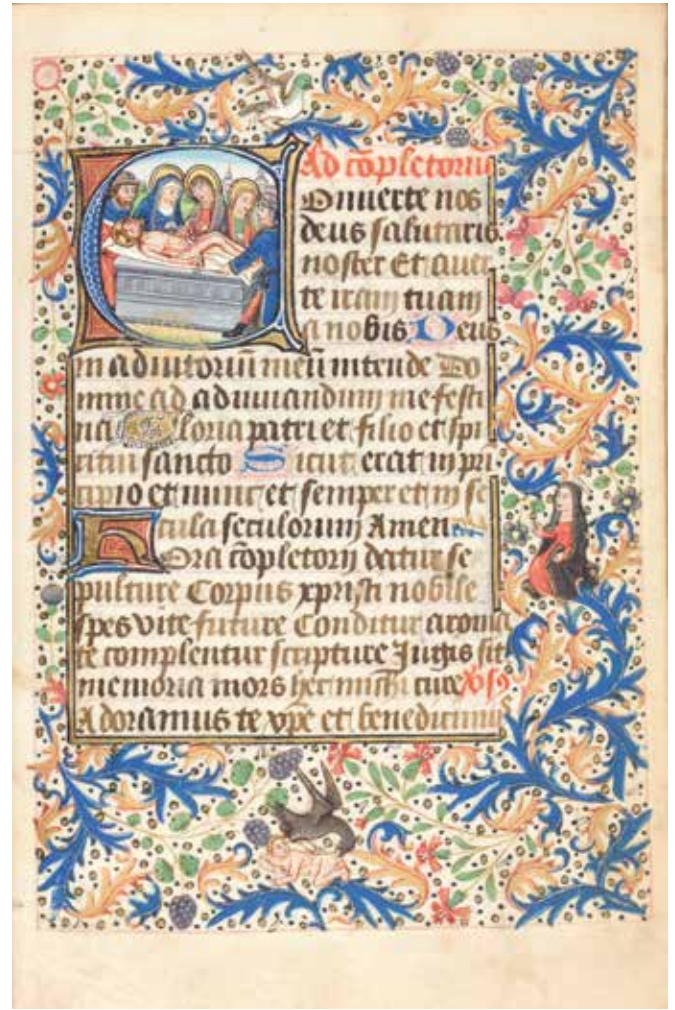 Ad cōpletoriū
Onuerte nos
deus salutaris
noster Et auer
te iram tuam
a nobis Deus
in adiutoriū meū intende Do
mine ad adiuuandum me festi
na Gloria patri et filio et spi
ritui sancto Sicut erat in pri
cipio et nunc et semper et in se
cula seculorum Amen
Hora cōpletorij datur se
pulture Corpus xpristi nobile
spes vite future Conditur aroma
te complentur scripture Jugis sit
memoria mors hec michi cure
Adoramus te xpē et benedicimus